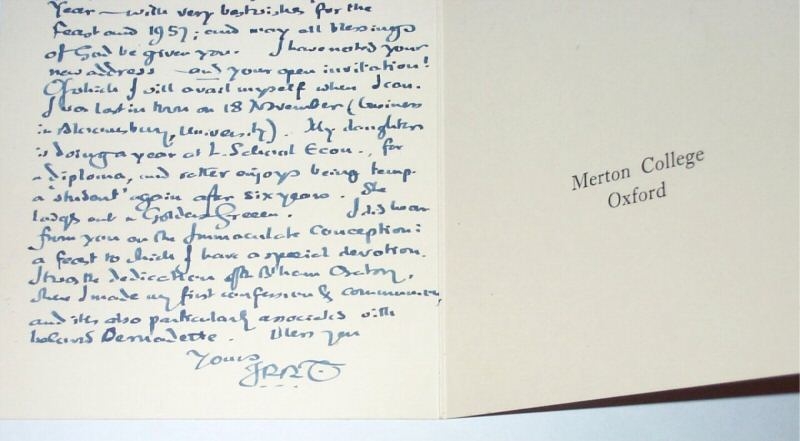 Year — with very best wishes for the
feast and 1957; and may all blessings
of God be given you. I have noted your
new address — and your open invitation!
Of which I will avail myself when I can.
I was last in town on 18 November (business
in Bloomsbury, University). My daughter
is doing a year at L. School Econ., for
a diploma, and rather enjoys being temp.
a 'student' again after six years. She
lodges out in Golders Green. I was
from you on the Immaculate Conception:
a feast to which I have a special devotion.
It was the dedication of the B'ham Oratory,
where I made my first confession & communion,
and it is also particularly associated with
beloved Bernadette. Bless you
Yours
JRRT
Merton College
Oxford